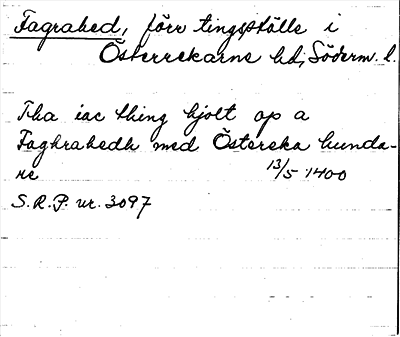 Fagrahed, förr tingställe i
Österrekarne hd, Söderm. l.
Tha iac thing hjolt op a
Faghrahedh med Östereka hunda-
re 13/5 1400
S.R.P. nr. 3097